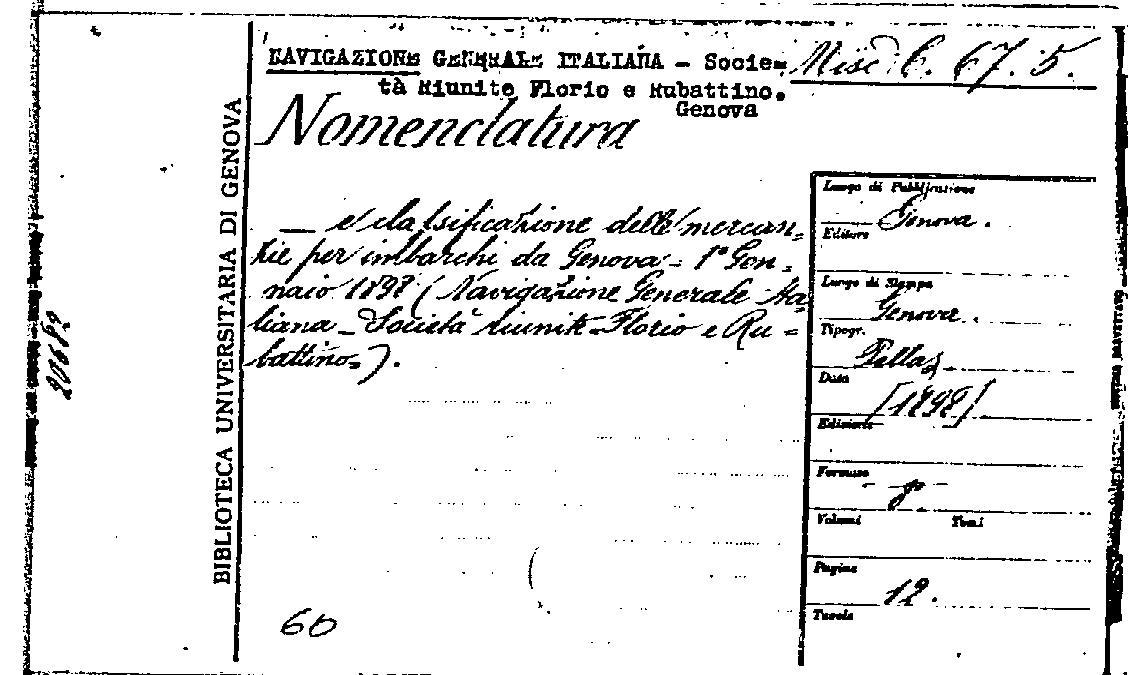 NAVIGAZIONE GENERALE ITALIANA - Socie=
tà Riunite Florio e Rubattino.
Genova
Misc. C. 67. 5.
Nomenclatura
— e classificazione delle mercan=
zie per imbarchi da Genova - 1° Gen=
naio 1898 (Navigazione Generale Ita
liana - Società riunite - Florio e Ru=
battino.).
60
BIBLIOTECA UNIVERSITARIA DI GENOVA
Luogo di Pubblicazione
Genova.
Editore
Luogo di Stampa
Genova.
Tipogr.
Pellas
Data
[1898]
Edizione
Formato
- 8° -
Volumi Tomi
Pagine
12.
Tavole